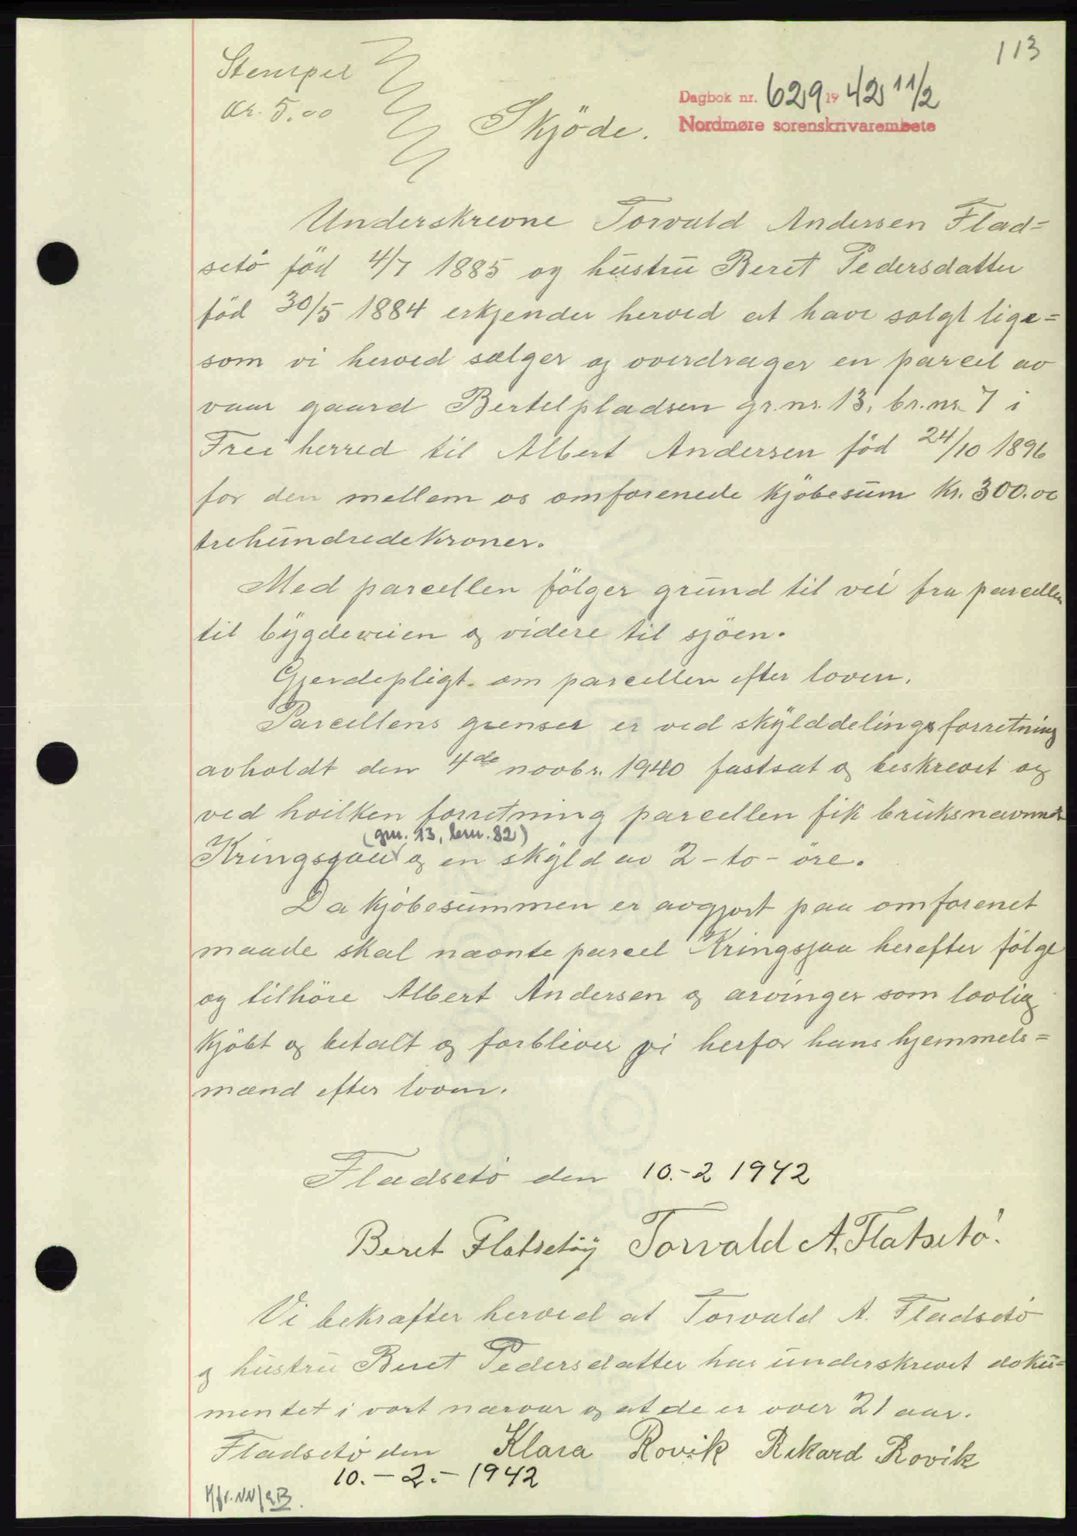 113
Stempel
Kr. 5.00
Dagbok nr. 629 1942 11/2
Nordmøre sorenskrivarembete
Skjöde.
Underskrevne Torvald Andersen Flad=
setö föd 4/7 1885 og hustru Beret Pedersdatter
föd 30/5 1884 erkjender herved at have solgt lige=
som vi herved sælger og overdrager en parcel av
vaar gaard Bertelpladsen gr.nr. 13, br.nr. 7 i
Frei herred til Albert Andersen föd 24/10 1896
for den mellem os omforenede kjöbesum Kr. 300.00
trehundredekroner.
Med parcellen fölger grund til vei fra parcellen
til bygdeveien og videre til sjöen.
Gjerdepligt om parcellen efter loven.
Parcellens grenser er ved skylddelingsforretning
avholdt den 4de novbr. 1940 fastsat og beskrevet og
ved hvilken forretning parcellen fik bruksnavnet
(gnr. 13, brnr. 82)
Kringsjaa og en skyld av 2 - to - öre.
Da kjöbesummen er avgjort paa omforenet
maade skal nævnte parcel Kringsjaa herefter fölge
og tilhöre Albert Andersen og arvinger som lovlig
kjöbt og betalt og forbliver vi herfor hans hjemmels=
mænd efter loven.
Fladsetö den 10.-2 1942
Beret Flatsetøy Torvald A. Flatsetö.
Vi bekræfter herved at Torvald A. Fladsetö
og hustru Beret Pedersdatter har underskrevet doku=
mentet i vort nærvær og at de er over 21 aar.
Fladsetö den Klara Rovik Rikard Rovik
10.-2.-1942